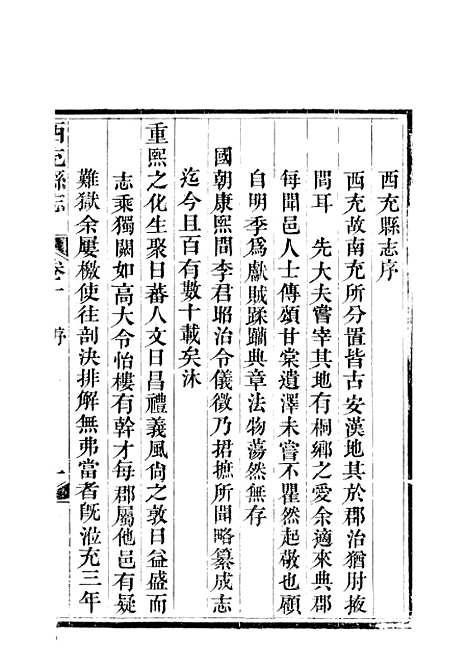 西充縣志序
西充故南充所分置皆古安漢地其於郡治猶肘掖
間耳　先大夫嘗宰其地有桐鄉之愛余適來典郡
每聞邑人士傳頌甘棠遺澤未嘗不瞿然起敬也顧
自明季爲獻賊蹂躪典章法物蕩然無存
國朝康熙間李君昭治令儀徵乃捃摭所聞略纂成志
迄今且百有數十載矣沐
重熙之化生聚日蕃人文日昌禮義風尙之敦日益盛而
志乘獨闕如高大令怡樓有幹才每郡屬他邑有疑
難獄余屢檄使往剖決排解無弗當者旣涖充三年
西充縣志
卷一　序
一